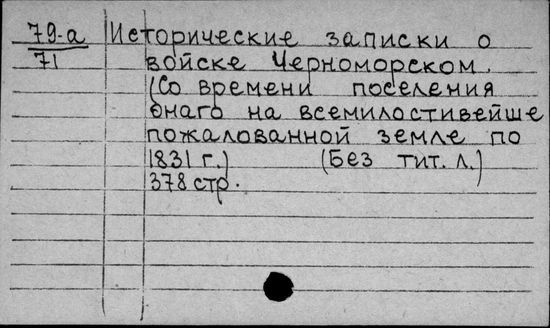 79-а Исторические записки о
71 войске Черноморском.
(Со времени поселения
онаго на всемилостивейше
пожалованной земле по
1831 г.) (Без тит. л.)
378 стр.